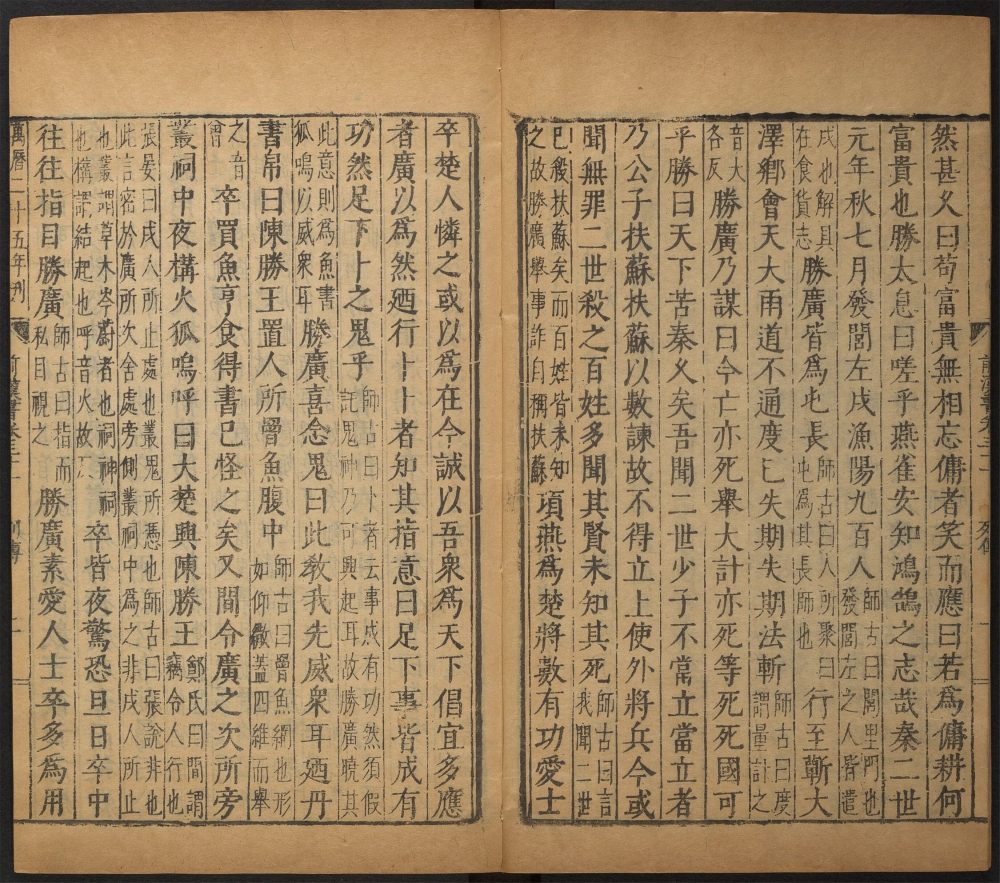 然甚乆曰苟富貴無相忘傭者笑而應曰若爲傭耕何
富貴也勝太息曰嗟乎燕雀安知鴻鵠之志哉秦二世
元年秋七月發閭左戍漁陽九百人師古曰閭里門也發閭左之人皆遣
戍也解具在食貨志勝廣皆爲屯長師古曰人所聚曰屯爲其長帥也行至蘄大
澤鄉會天大雨道不通度已失期失期法斬師古曰度謂量計之
音大各反勝廣乃謀曰今亡亦死舉大計亦死等死死國可
乎勝曰天下苦秦乆矣吾聞二世少子不當立當立者
乃公子扶蘇扶蘇以數諫故不得立上使外將兵今或
聞無罪二世殺之百姓多聞其賢未知其死師古曰言我聞二世
已殺扶蘇矣而百姓皆未知之故勝廣舉事詐自稱扶蘇項燕爲楚將數有功愛士
前漢書卷三十一
列傳
一
卒楚人憐之或以爲在今誠以吾衆爲天下倡宜多應
者廣以爲然廼行卜卜者知其指意曰足下事皆成有
功然足下卜之鬼乎師古曰卜者云事成有功然須假託鬼神乃可興起耳故勝廣曉其
此意則爲魚書狐鳴以威衆耳勝廣喜念鬼曰此敎我先威衆耳廼丹
書帛曰陳勝王置人所罾魚腹中師古曰罾魚網也形如仰繖蓋四維而舉
之音曾卒買魚亨食得書已怪之矣又間令廣之次所旁
叢祠中夜構火狐鳴呼曰大楚興陳勝王鄭氏曰間謂竊令人行也
張晏曰戍人所止處也叢鬼所憑也師古曰張說非也此言密於廣所次舍處旁側叢祠中爲之非戍人所止
也叢謂草木岑蔚者也祠神祠也構謂結起也呼音火故反卒皆夜驚恐旦日卒中
往往指目勝廣師古曰指而私目視之勝廣素愛人士卒多爲用
萬曆二十五年刊
前漢書卷三十一
列傳
二